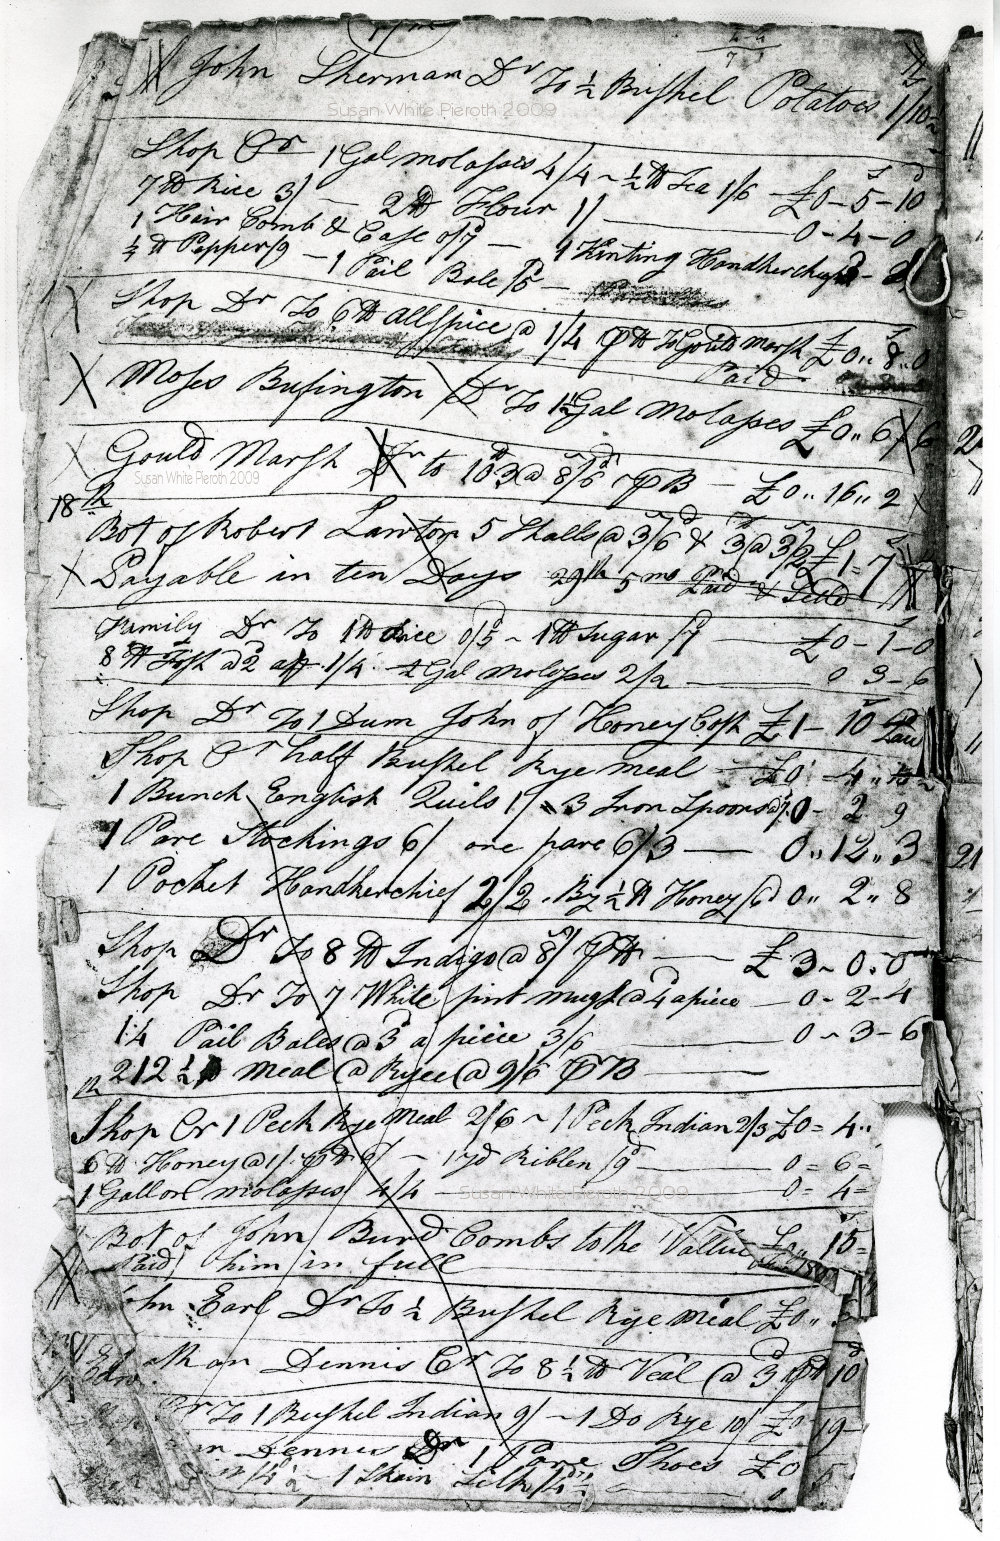 John Sherman Dr To ½ Bushel Potatoes 1/10
Susan White Pieroth 2009
Shop Cr 1 Gal molasses 4/4 ~ ½ lb Tea 1/6 £0-5-10
7 lb Rice 3/ — 2 lb Flour 1/ — 0-4-0
1 Hair Comb & Case 0/7 — 1 Hinting Handkerchief
¼ lb Pepper /9 — 1 Pail Bale /5 —
Shop Dr To 6 lb Allspice @ 1/4 P lb To Gould Marsh £0,, 8,,0
Paid
Moses Busington Dr To 1½ Gal Molasses £0,, 6,, 6
Gould Marsh Dr to 10 @ 8/6 P B — £0,, 16,, 2
Susan White Pieroth 2009
18th
Bot of Robert Lawton 5 Shalls @ 3/6 & 3 @ 3/2 £1=7
Payable in ten Days 29th 5mo Paid & Settld
Family Dr To 1 lb Rice 0/5 ~ 1 lb Sugar /7 — £0-1-0
8 lb Fish @ 2 1/4 ½ Gal Molasses 2/2 — 0 3-6
Shop Dr To 1 Dum John of Honey Cost £1-10
Shop Cr half Bushel Rye meal — £0 -4
1 Bunch English Quils 1/ ,, 3 Iron Spoons @ 7 0- 2 9
1 Pare Stockings 6/ one pare 6/3 — 0,,12,,3
1 Pocket Handkerchief 2/2 . By ½ lb Honey /6 0,, 2,, 8
Shop Dr To 8 lb Indigo @ 8/ P lb — £3~0.0
Shop Dr To 7 White pint mugs @ 4 apiece — 0-2-4
14 Pail Bales @ 3 a piece 3/6 — 0~3-6
212½ lb Meal @ Ryee @ 9/6 P B —
Shop Cr 1 Peck Rye Meal 2/6 ~ 1 Peck Indian 2/3 £0=4,,
6 lb Honey @ 1/ P lb 6/ — 1 yd Riblen /9 — 0=6=
1 Gallon molasses 4/4 — 0=4=
Susan White Pieroth 2009
Bot of John Burd Combs to the Vallue £0,, 15=
Paid him in full
John Earl Dr To ½ Bushel Rye Meal £0,,
Dennis Cr To 8½ lb Veal @ 3 P lb /10
Cr To 1 Bushel Indian 9/ ~ 1 Do Rye 10/ £0-19-
Dennis Dr 1 Pare Shoes £0 5
1 Skain Silk /4½ — 0